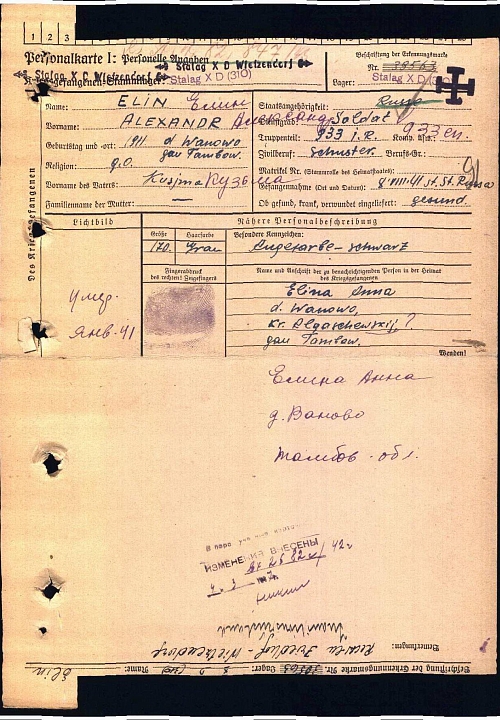 1 2 3
Personalkarte I: Personelle Angaben
Stalag X D Wietzendorf
Stalag X D Wietzendorf
Kriegsgefangenen-Stammlager: Stalag X D (310)
Beschriftung der Erkennungsmarke
Nr. 39563
Lager: Stalag X D (310)
Des Kriegsgefangenen
Name: ELIN Елин
Vorname: ALEXANDR Александр
Geburtstag und -ort: 1911 d Wanowo
gau Tambow.
Religion: g.o.
Vorname des Vaters: Kusjma Кузьма
Familienname der Mutter: —
Staatsangehörigkeit: Russe
Dienstgrad: Soldat
Truppenteil: 933 i.R. Komp. usw.: 933 сп.
Zivilberuf: Schuster. Berufs-Gr.:
Matrikel Nr. (Stammrolle des Heimatstaates):
Gefangennahme (Ort und Datum): 8.VIII.41 St. Russa
Ob gesund, krank, verwundet eingeliefert: gesund.
Lichtbild
Nähere Personalbeschreibung
Größe
Haarfarbe
Besondere Kennzeichen:
170
Grau
Augefarbe-schwarz
Fingerabdruck
des rechten! Zeigefingers
Name und Anschrift der zu benachrichtigenden Person in der Heimat
des Kriegsgefangenen
Elina Anna
d. Wanowo,
kr. Algaschewskij, ?
gau Tambow.
умер.
Янв. 41
Wenden!
Елина Анна
д. Ваново
Тамбов. обл.
В пер. уч.
ИЗМЕНЕНИЯ ВНЕСЕНЫ
42г
Bemerkungen:
Friedhof - Wietzendorf
Beschriftung der Erkennungsmarke Nr. 39563 Lager: Name: Elin